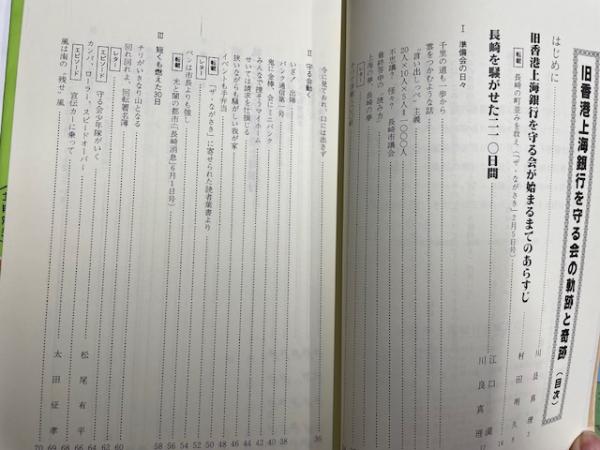 旧香港上海銀行を守る会の軌跡と奇跡（目次）
はじめに 川良真理 2
旧香港上海銀行を守る会が始まるまでのあらすじ
転載 長崎の町並みを救え（「ザ・ながさき」2月5日号） 村田明久
長崎を騒がせた二一〇日間 江口
川良真理
Ⅰ 準備会の日々
千里の道も一歩から
雲をつかむような話
"言い出しっぺ"主義
20人×10人×5人＝一〇〇〇人
不思議！怪奇！長崎市議会
最終答申の"読み方"
上海の夢、長崎の夢
レター
今に見ておれ、口には出さず 36
Ⅱ 守る会動く
いざ！出陣 38
バンク通信第一号 40
鬼に金棒、会にミニバンク 42
みんなで捜そうマイホーム 44
せいては請求を仕損じる 46
狭いながらも騒がしい我が家 48
イベントも手弁当 50
レター 52
転載 「ザ・ながさき」に寄せられた読者葉書より 54
ペンは市長よりも強し
転載 光と闇の都市（「長崎消息」6月1日号） 56
Ⅲ 短くも燃えた30日 58
チリがいきなり山となる 60
回れ回れよ、回転署名簿 62
レター
エピソード 守る会少年隊がいく 松尾有平 64
カンパ・ローラー、スピードオーバー 66
エピソード 宣伝カーに乗って 太田征孝 68
風は南の"残せ"風 70